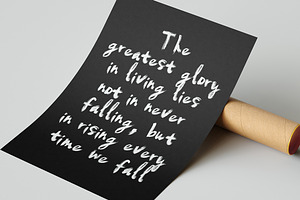 The
greatest glory
in living lies
not in never
falling, but
in rising every
time we fall